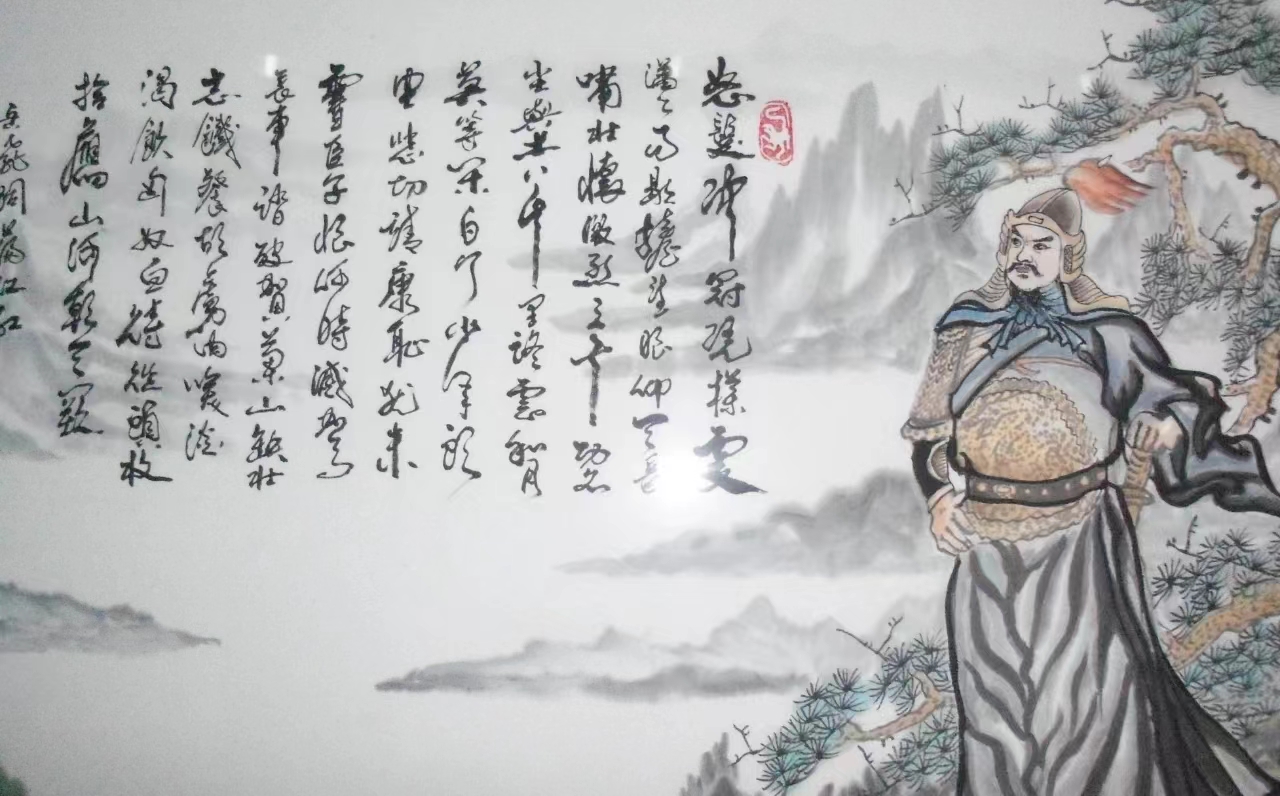 怒髮冲冠凭欄處
瀟々雨歇擡望眼仰天長
嘯壯懷激烈三十功名
尘與土八千里路雲和月
莫等閑白了少年頭
空悲切靖康恥猶未
雪臣子恨何時滅駕
長車踏破賀蘭山缺壯
志饑餐胡虜肉笑談
渴飲匈奴血待從頭收
拾舊山河朝天闕
岳飛詞滿江红